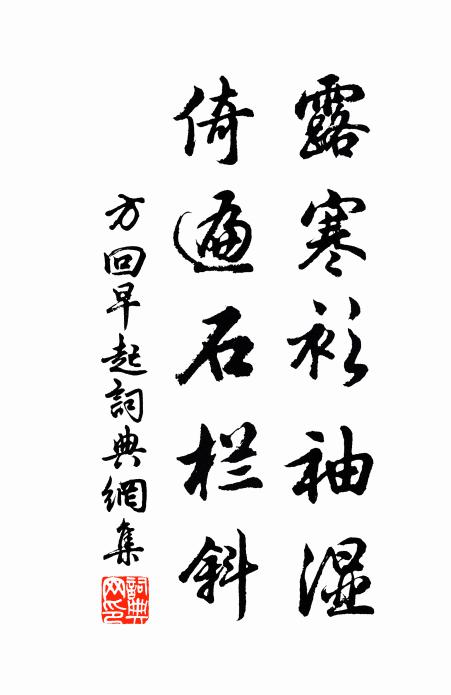 露寒衫袖湿
倚遍石栏斜
方回早起詞典網集
詞典
网印